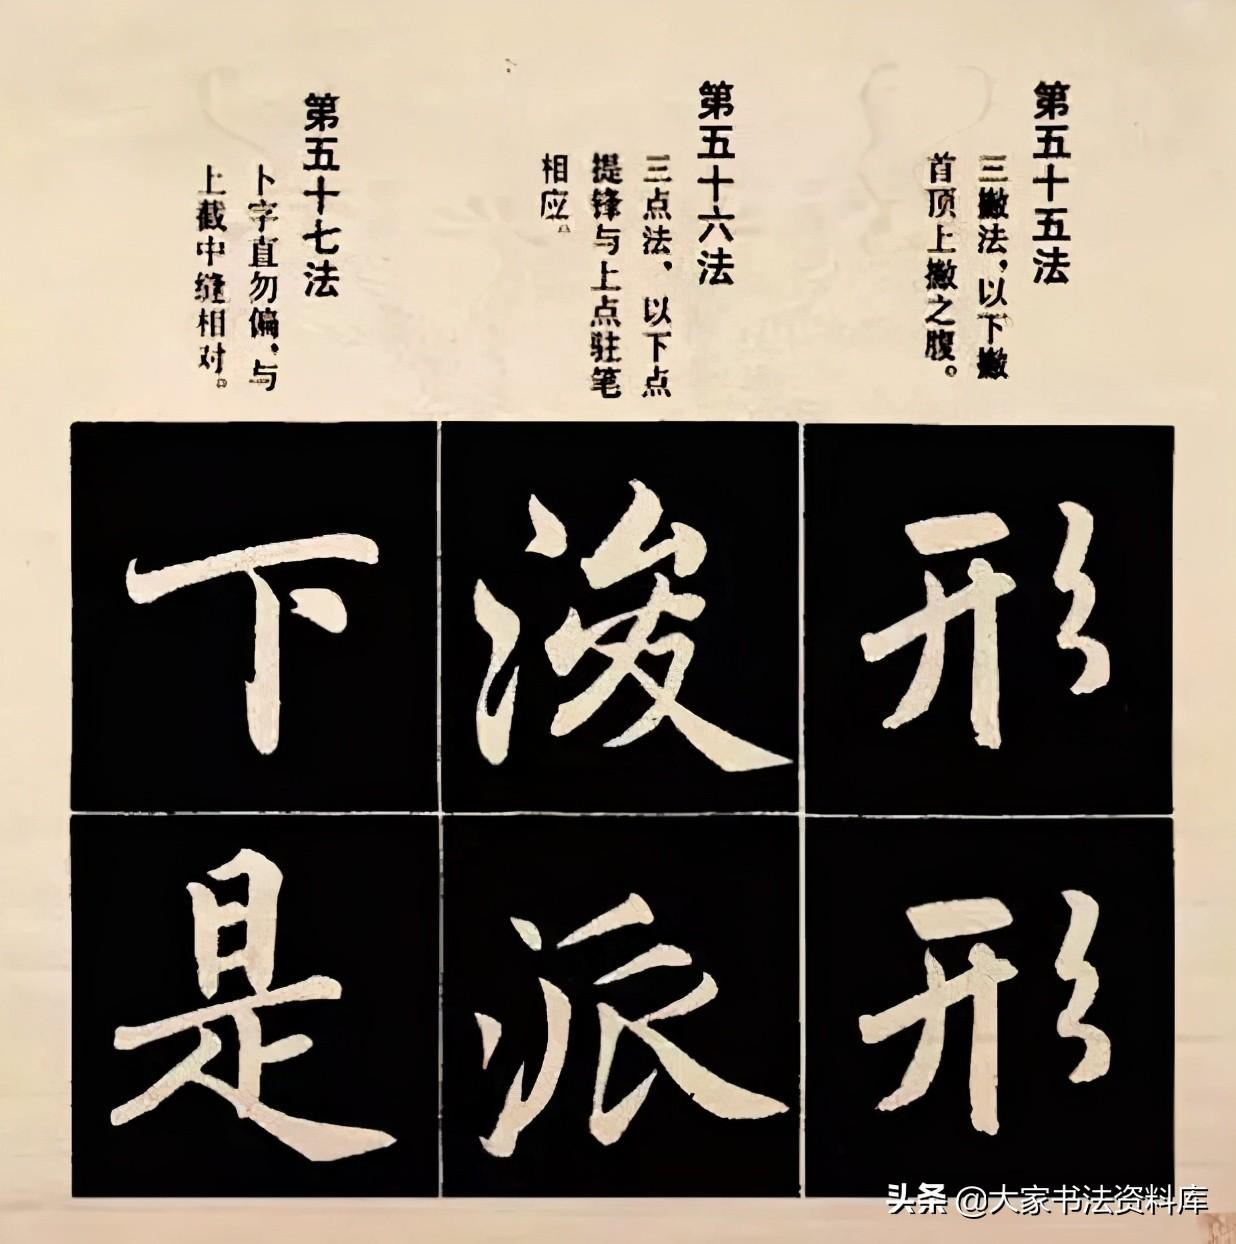 第五十五法
三撇法，以下撇
首顶上撇之腹。
第五十六法
三点法，以下点
提锋与上点驻笔
相应。
第五十七法
卜字直勿偏，与
上截中缝相对。
形
形
浚
派
下
是
头条 @大家书法资料库